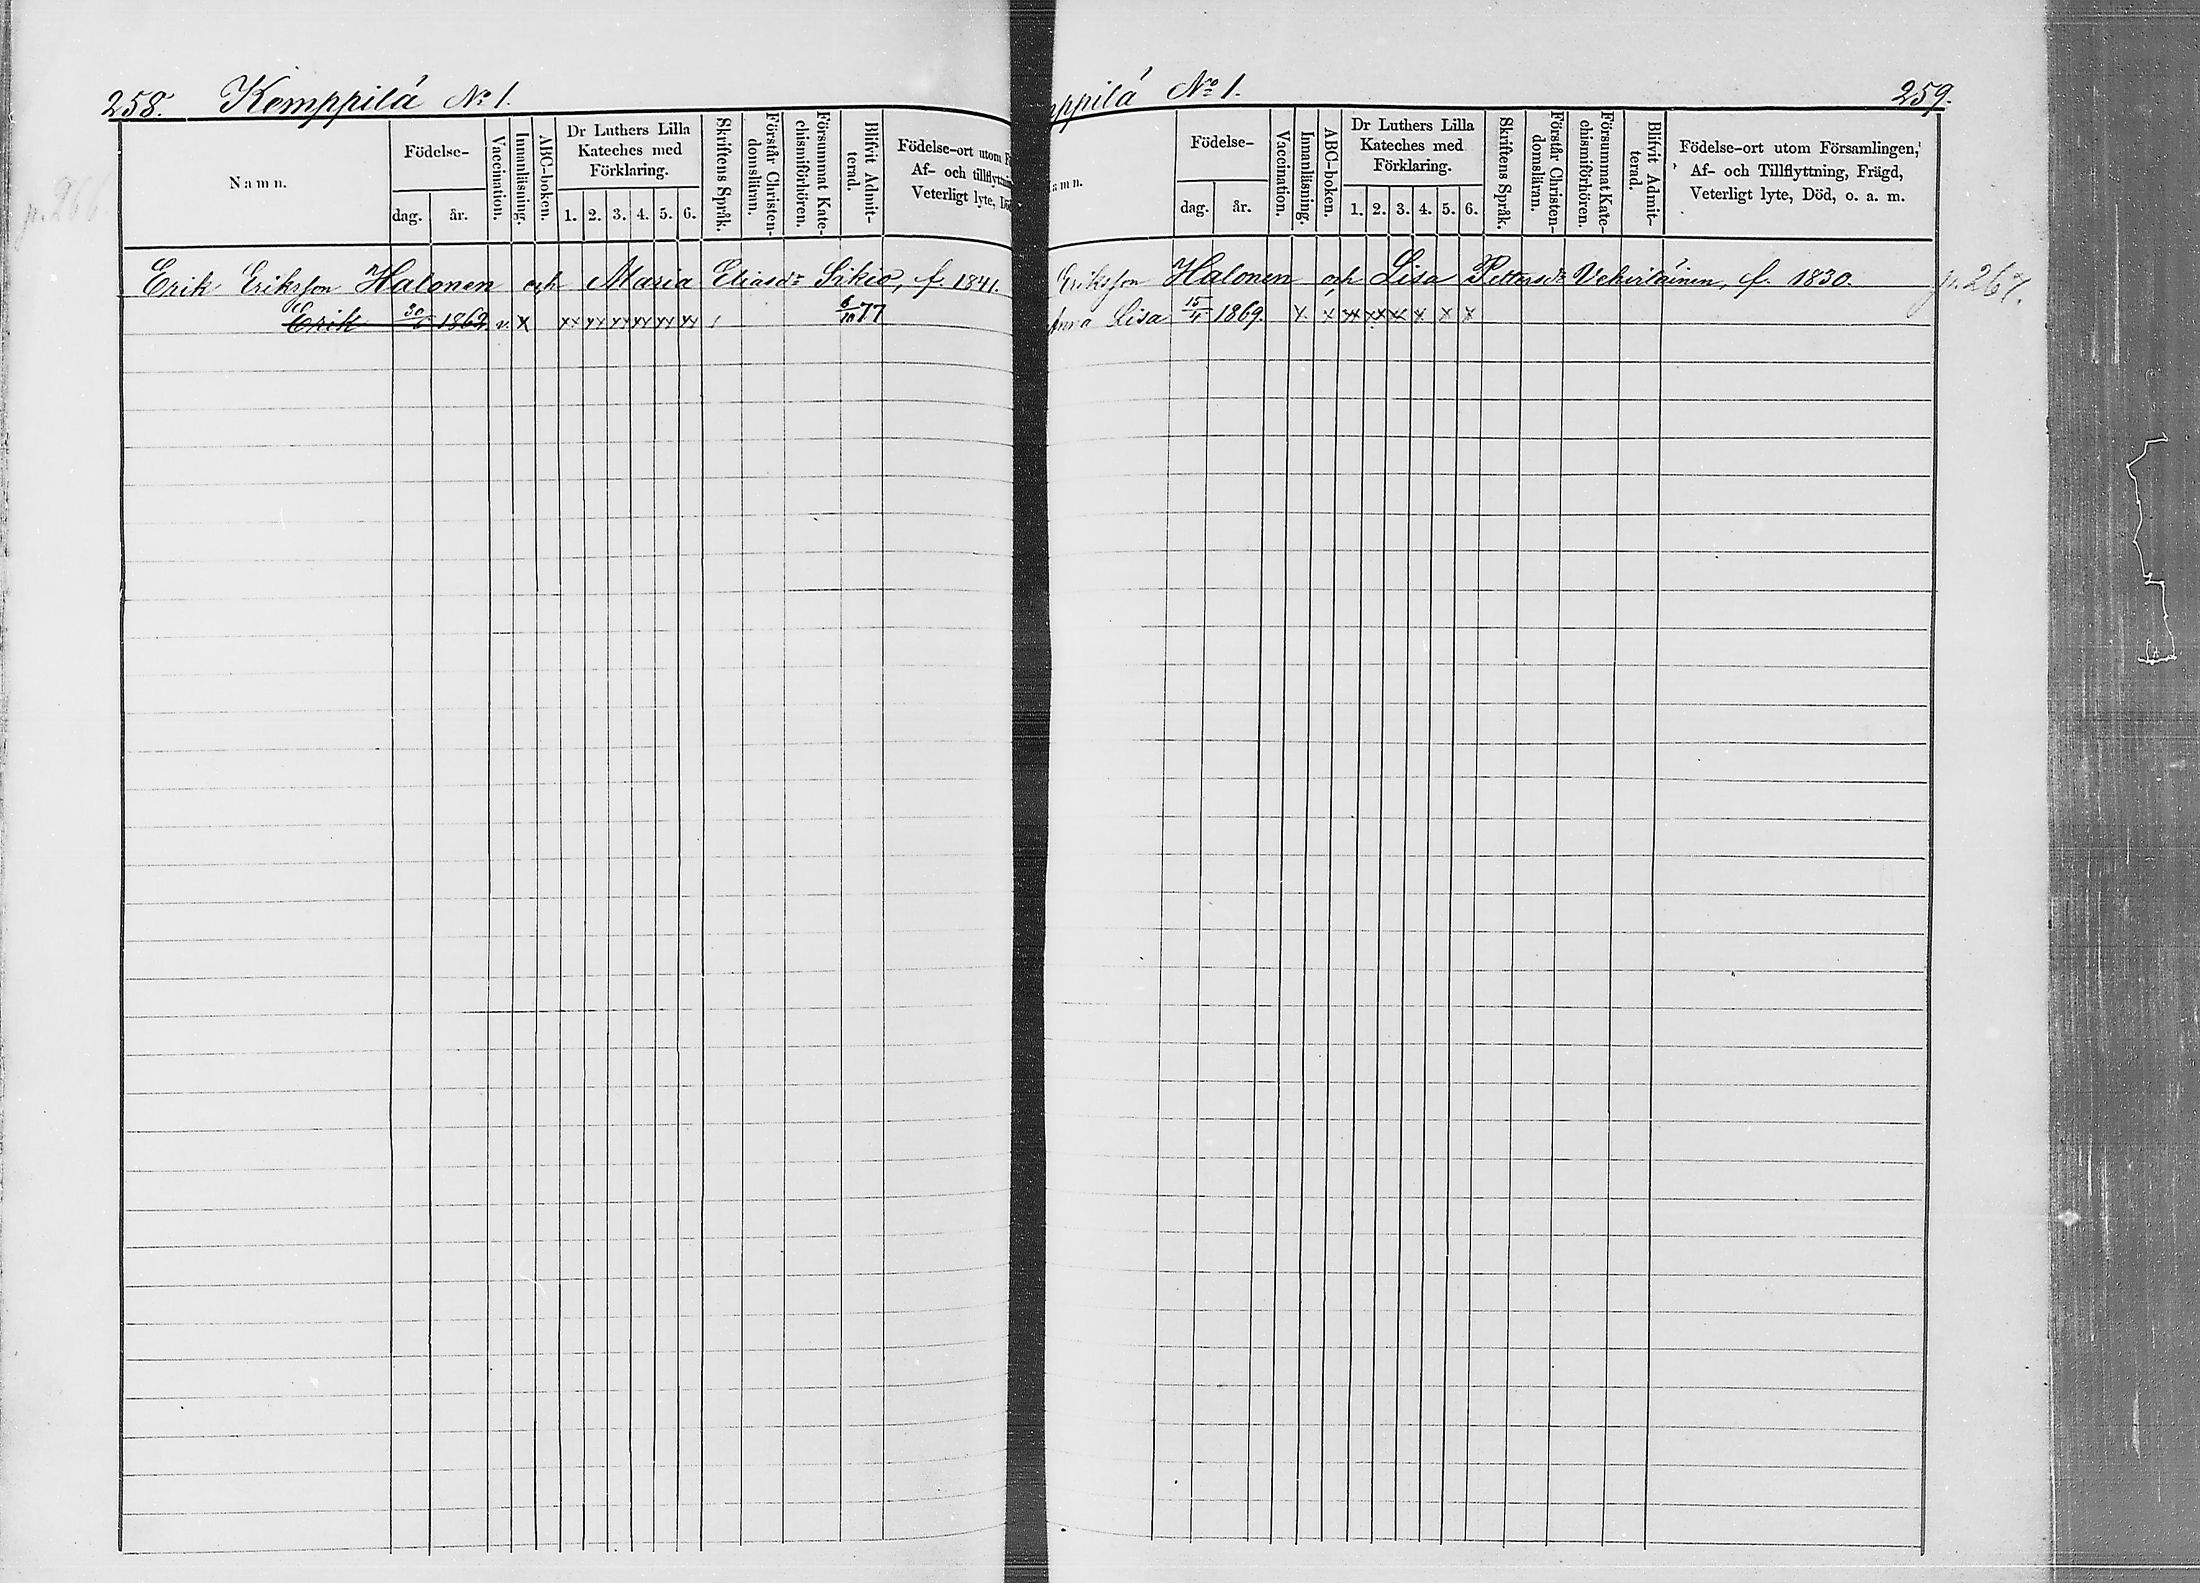 258. Kemppilä No 1.
Namn.
Födelse-
dag. år.
Vaccination.
Innanläsning.
ABC-boken.
Dr Luthers Lilla
Kateches med
Förklaring.
1. 2. 3. 4. 5. 6.
Skriftens Språk.
Förstår Christen-
domslänn.
Försummat Kate-
chismiförhören.
Blifvit Admit-
terad.
Födelse-ort utom
Af- och tillflyttni
Veterligt lyte, Dö
p. 266.
Erik Eriksson Halonen och Maria Eliasdr Sikiö, f. 1841.
Erik 30/6 1862 v. x xx xx xx xx xx xx / 6/10 77
ppilä No 1. 259.
amn.
Födelse-
dag. år.
Vaccination.
Innanläsning.
ABC-boken.
Dr Luthers Lilla
Kateches med
Förklaring.
1. 2. 3. 4. 5. 6.
Skriftens Språk.
Förstår Christen-
domsläran.
Försummat Kate-
chismiförhören.
Blifvit Admit-
terad.
Födelse-ort utom Församlingen,
Af- och Tillflyttning, Frägd,
Veterligt lyte, Död, o. a. m.
Eriksson Halonen och Lisa Pettersdr Vehviläinen, f. 1830. p. 267.
Anna Lisa 15/11 1869. x x xx xx xx x x x